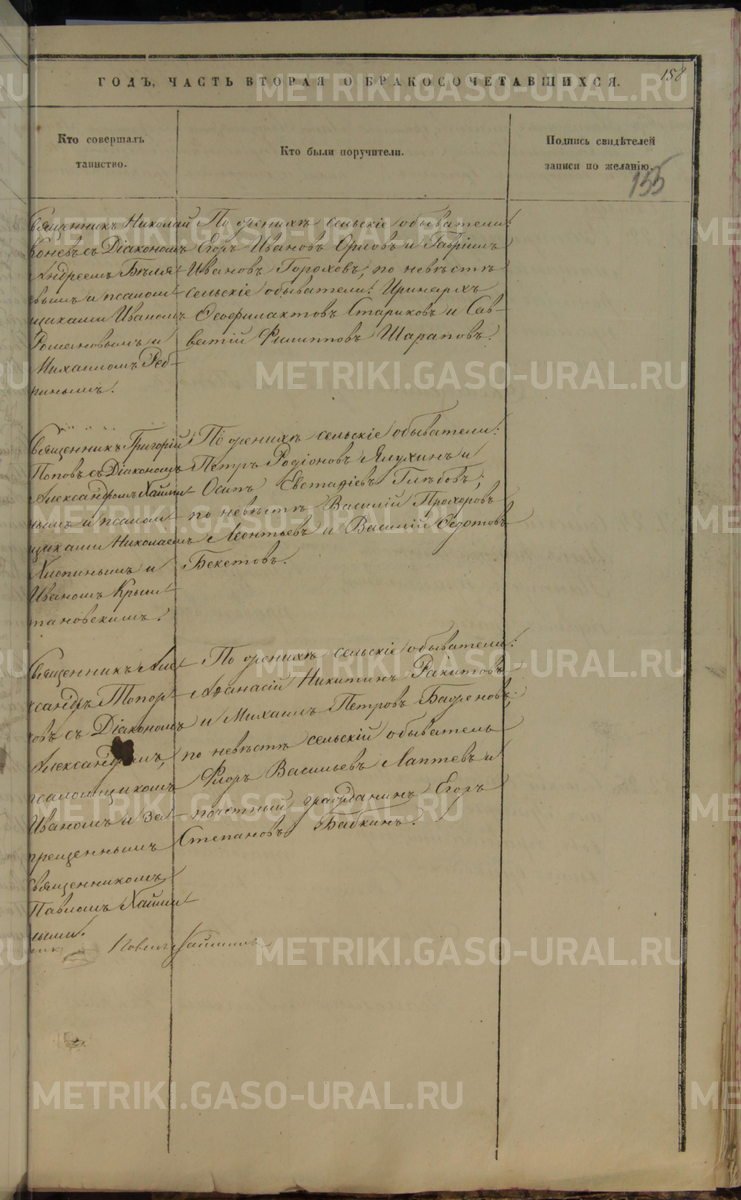 158
ГОДЪ, ЧАСТЬ ВТОРАЯ О БРАКОСОЧЕТАВШИХСЯ.
Кто совершалъ
таинство.
Кто были поручители.
Подпись свидѣтелей
записи по желанію.
155
священникъ Николай
Коневъ съ Діакономъ
Андреемъ Бѣляе-
вымъ и псалом-
щиками Иваномъ
Романовымъ и
Михаиломъ
По женихѣ сельскіе обыватели:
Егоръ Ивановъ Орловъ и Гавріилъ
Ивановъ Гороховъ; по невѣстѣ
сельскіе обыватели: Иринархъ
Ѳеофилактовъ Стариковъ и Сав-
ватій Филипповъ Шараповъ.
священникъ Григорій
Поповъ съ Діакономъ
Александромъ
нымъ и псалом-
щиками Николаемъ
Хлопинымъ и
Иваномъ Крыш-
тановскимъ.
По женихѣ сельскіе обыватели:
Петръ Родіоновъ и
Осипъ Евстафіевъ Глѣбовъ;
по невѣстѣ Василій Прохоровъ
Леонтьевъ и Василій Ѳедотовъ
Бекетовъ.
священникъ Алек-
сандръ Топор-
ковъ съ Діакономъ
Александромъ,
псаломщикомъ
Иваномъ и за-
прещеннымъ
священникомъ
Павломъ
ными.
По женихѣ сельскіе обыватели:
Аѳанасій Никитинъ Ракитовъ
и Михаилъ Петровъ Баженовъ;
по невѣстѣ сельскій обыватель
Флоръ Васильевъ Лаптевъ и
почетный гражданинъ Егоръ
Степановъ Бабкинъ.
METRIKI.GASO-URAL.RU